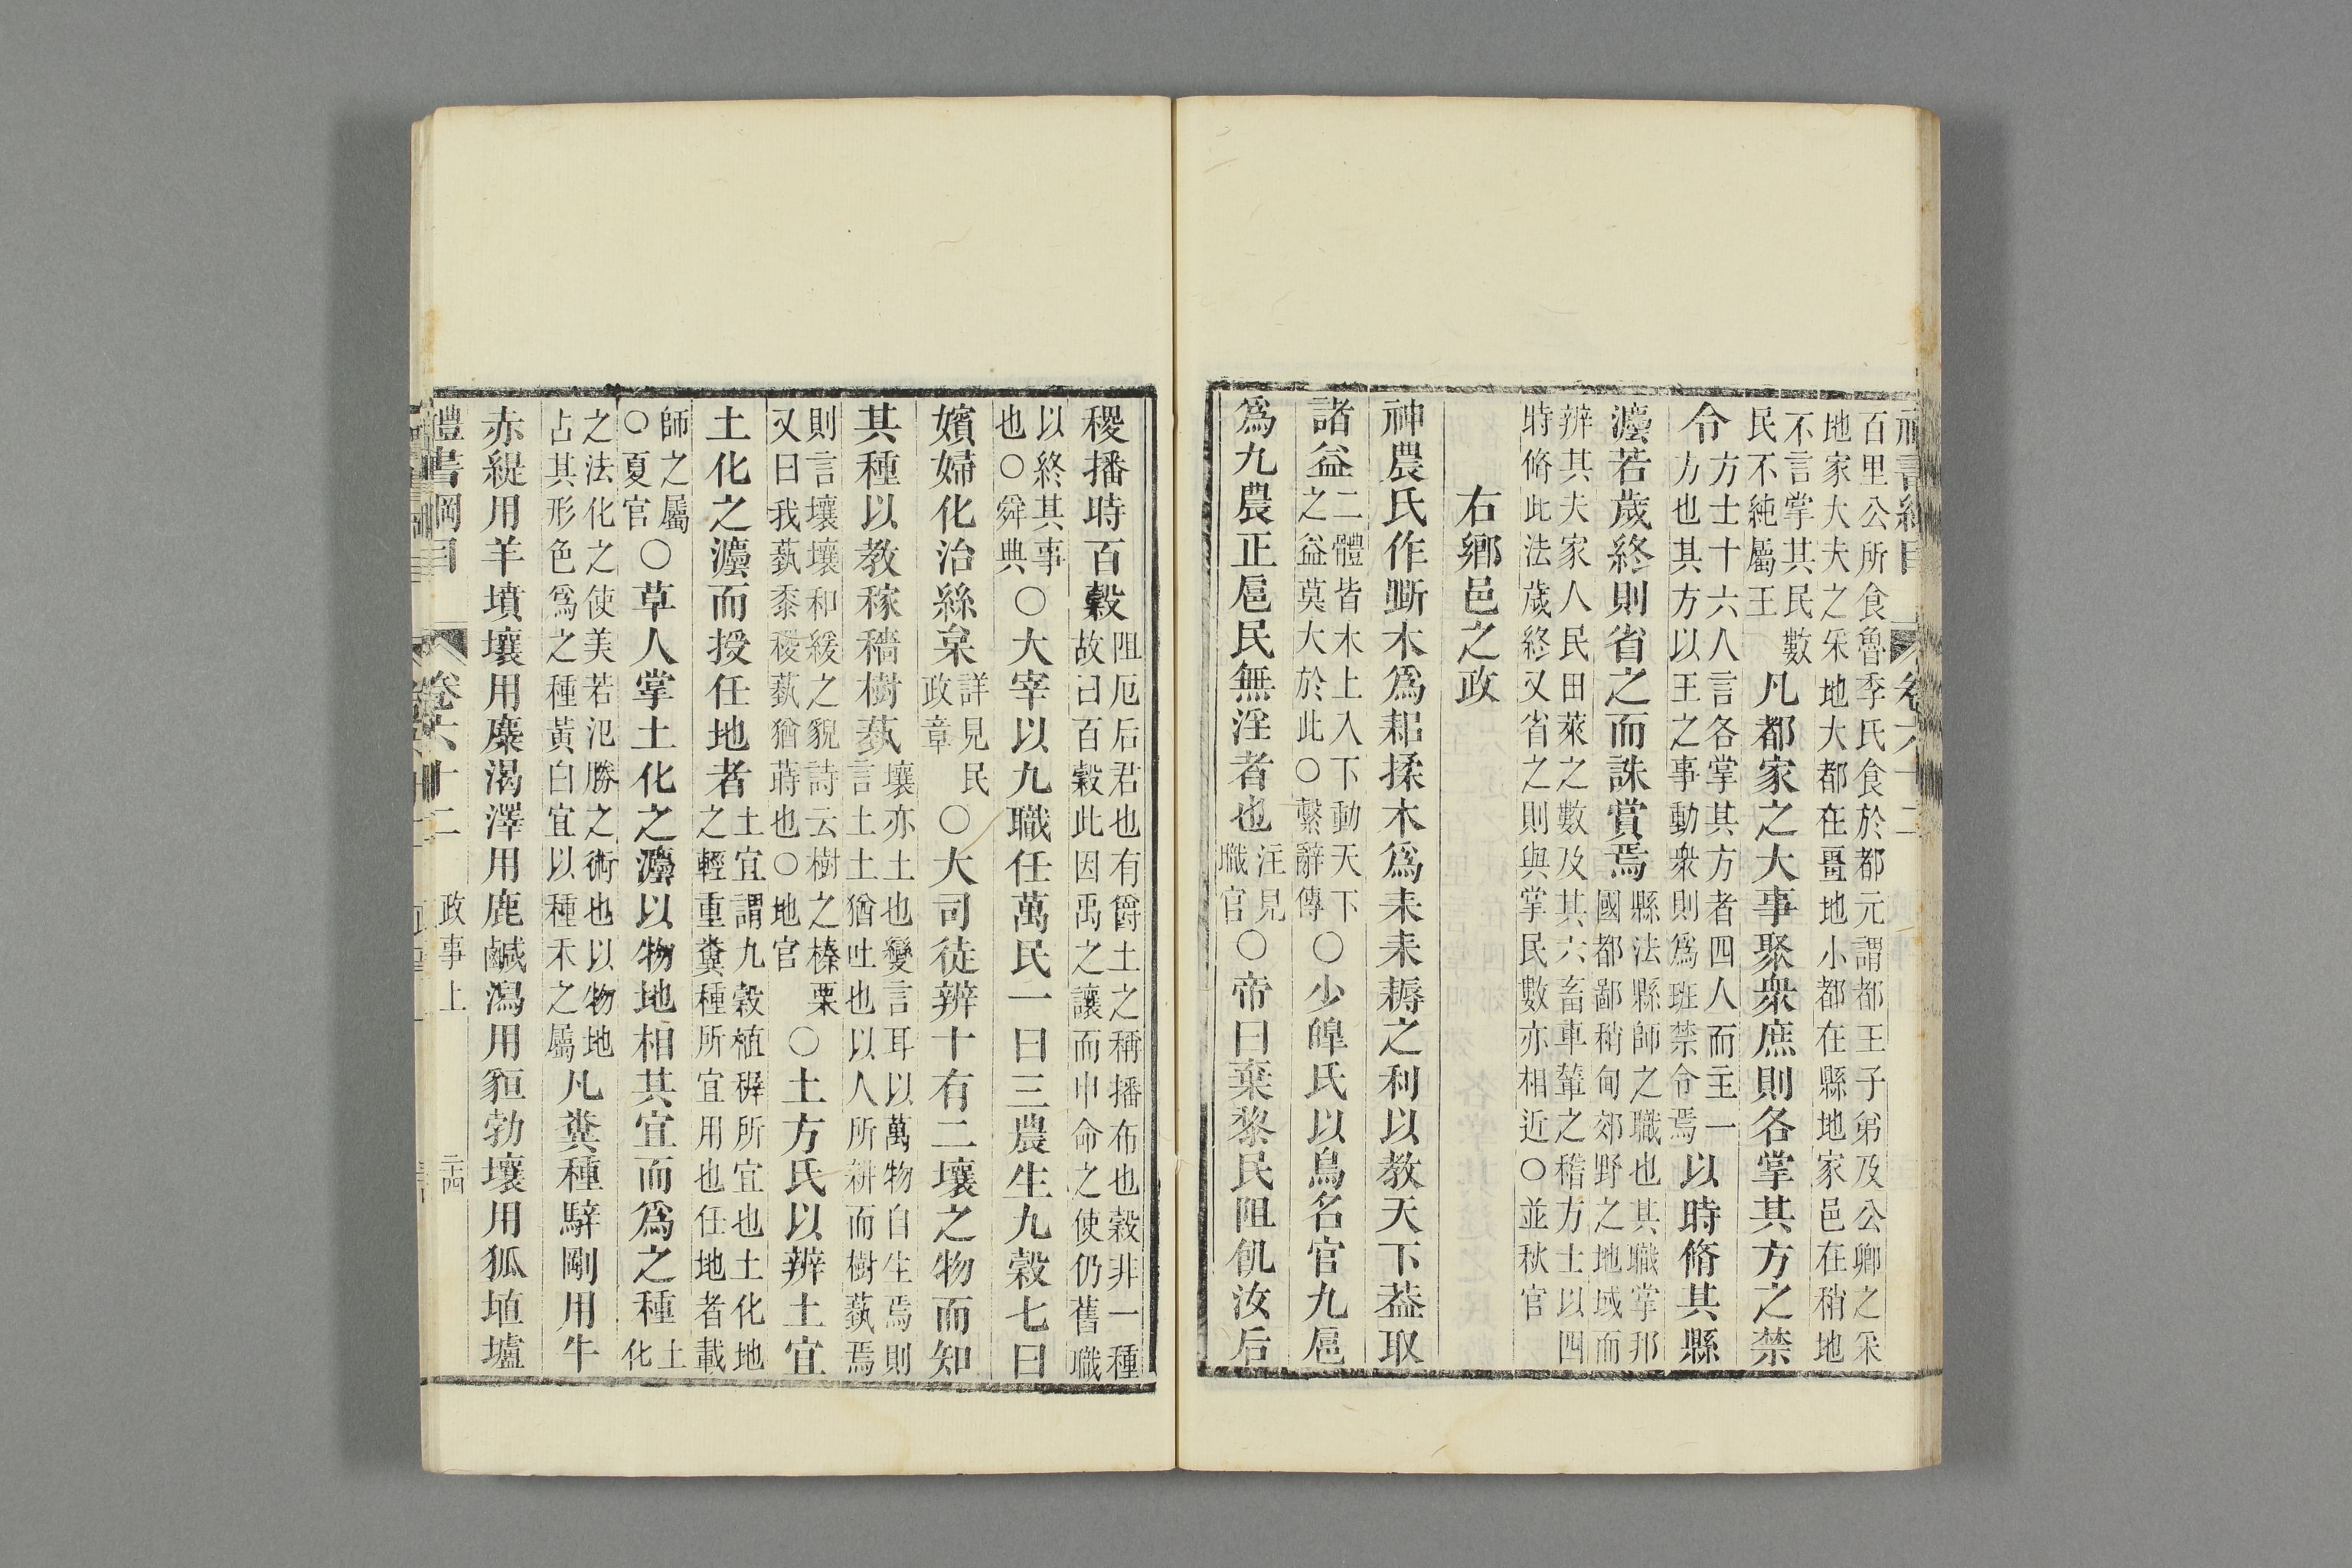 百里公所食魯季氏食於都元謂都王子弟及公卿之采
地家大夫之采地大都在畺地小都在縣地家邑在稍地
不言掌其民數
民不純屬王
凡都家之大事聚衆庶則各掌其方之禁
令
方士十六人言各掌其方者四人而主一
方也其方以王之事動衆則爲班禁令焉
以時脩其縣
灋若歲終則省之而誅賞焉
縣法縣師之職也其職掌邦
國都鄙稍甸郊野之地域而
辨其夫家人民田萊之數及其六畜車輦之稽方士以四
時脩此法歲終又省之則與掌民數亦相近○並秋官
右鄉邑之政
神農氏作斲木爲耜揉木爲耒耒耨之利以教天下葢取
諸益
二體皆木上入下動天下
之益莫大於此○繫辭傳
○少皞氏以鳥名官九扈
爲九農正扈民無淫者也
注見
職官
○帝曰棄黎民阻飢汝后
稷播時百穀
阻厄后君也有爵土之稱播布也穀非一種
故曰百穀此因禹之讓而申命之使仍舊職
以終其事
也○舜典
○大宰以九職任萬民一曰三農生九穀七曰
嬪婦化治絲枲
詳見民
政章
○大司徒辨十有二壤之物而知
其種以教稼穡樹蓺
壤亦土也變言耳以萬物自生焉則
言土土猶吐也以人所耕而樹蓺焉
則言壤壤和緩之貌詩云樹之榛栗
又曰我蓺黍稷蓺猶蒔也○地官
○土方氏以辨土宜
土化之灋而授任地者
土宜謂九穀植穉所宜也土化地
之輕重糞種所宜用也任地者載
師之屬
○夏官
○草人掌土化之灋以物地相其宜而爲之種
土
化
之法化之使美若氾勝之術也以物地
占其形色爲之種黃白宜以種禾之屬
凡糞種騂剛用牛
赤緹用羊墳壤用麋渴澤用鹿鹹潟用貆勃壤用狐埴壚
禮書綱目 卷六十二 政事上